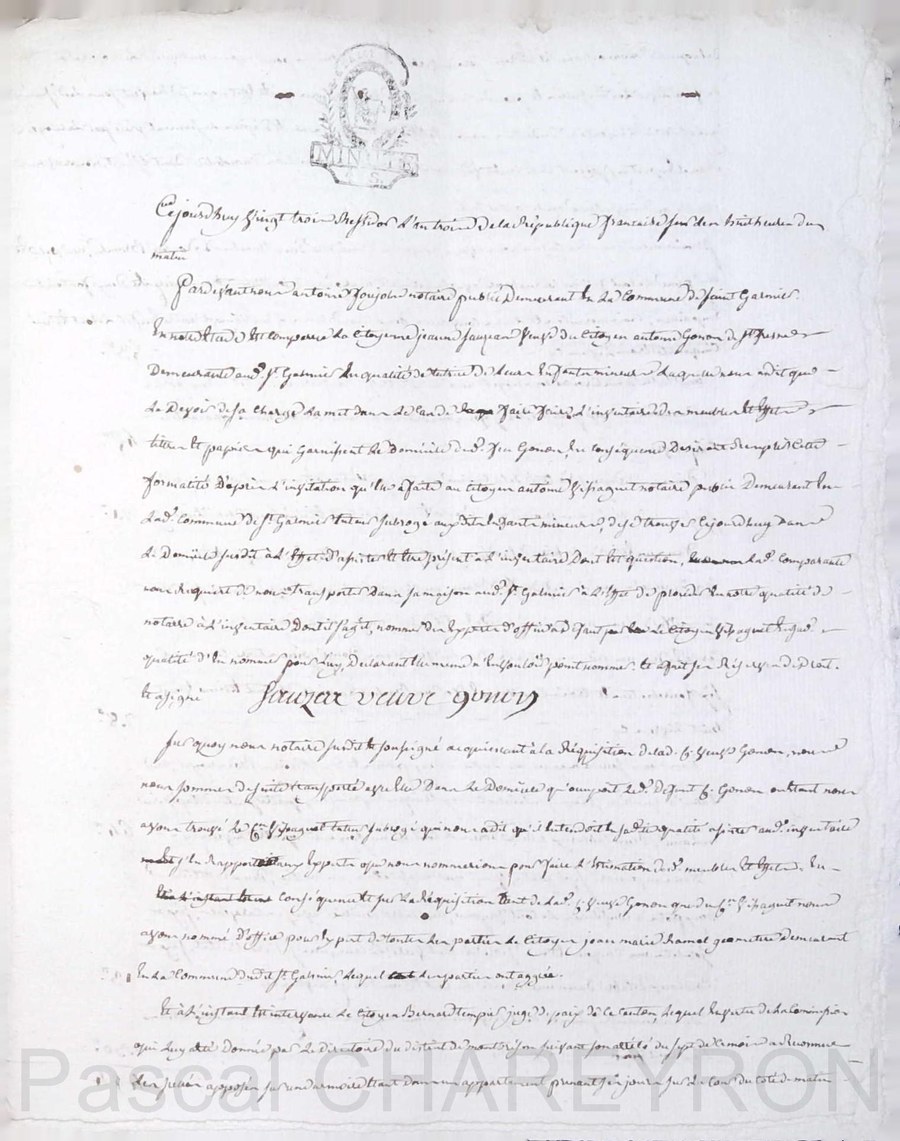 MINUTES
Cejourdhuy Vingt trois Messidor L'an trois De la République francaise sur les huit heures du
matin
Pardevant nous antoine notaire public Demeurant En La Commune de Saint Galmier
En notre Etude Est Comparue La Citoyenne jeanne veuve du Citoyen antoine Gonon de St
Demeurante aud. St. Galmier En qualité de tutrice de Leurs Enfants mineurs Laquelle nous a dit que
Le Devoir de sa Charge La met dans Le Cas de faire faire L'inventaire des meubles Et Effets
titres Et papiers qui Garnissent Le Domicile du d. feu Gonon, En Conséquence Desirant remplir Cette
formalité D'après L'invitation qu'elle a faite au Citoyen antoine notaire public Demeurant En
Lad. Commune de St. Galmier tuteur subrogé auxdits Enfants mineurs, de se trouver Cejourdhuy Dans
Le Domicile susdit a L'Effet d'assister Et Etre présent a L'inventaire Dont Est question, Lad. Comparante
nous Requiert de nous Transporter Dans sa maison aud. St. Galmier a L'Effet de proceder En notre qualité de
notaire à L'inventaire Dont il s'agit, nommer des Experts d'office a Le Citoyen
qualité d'En nommer pour Luy, Declarant Elle même n'En vouloir point nommer Et a fait ses Réserves de Droit.
Et a signé veuve gonon
Sur quoy nous notaire susdit Et soussigné acquiescant à la Réquisition de lad. C. veuve Gonon, nous
nous sommes de suite transporté avec Elle Dans Le Domicile qu'occupoit Le d. défunt C. Gonon ou Etant nous
avons trouvé Le C. tuteur subrogé qui nous a dit qu'il Entendoit En sad. qualité assister aud. inventaire
s'En rapportant aux Experts que nous nommerions pour faire L'Estimation desd. meubles Et Effets. En
conséquence Et sur La Réquisition tant de Lad. C. veuve Gonon que du C. nous
avons nommé D'office pour Expert de toutes Les parties Le Citoyen jean marie geometre Demeurant
En La Commune dudit St. Galmier, Lequel Les parties ont aggréé.
Et a L'instant Est intervenu Le Citoyen Bernard juge de paix de Ce Canton, Lequel En vertu de La Commission
qui Luy a été Donnée par Le Directoire du district de montbrison suivant son arrêté du sept de Ce mois a Reconnu
Les par apposés sur une armoire Etant dans un appartement prenant ses jours sur La Cour du Coté de matin
Pascal CHAREYRON